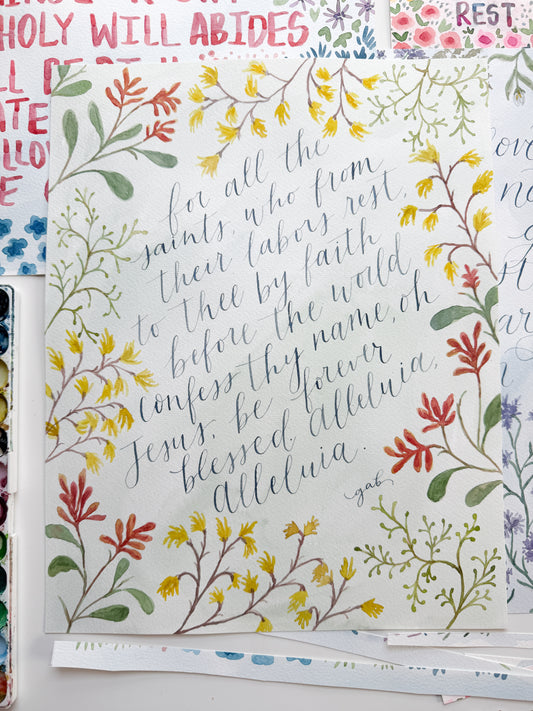 HOLY WILL ABIDES
REST
for all the
saints, who from
their labors rest,
to thee by faith
before the world
confess thy name, oh
Jesus, be forever
blessed. Alleluia,
Alleluia.
gab